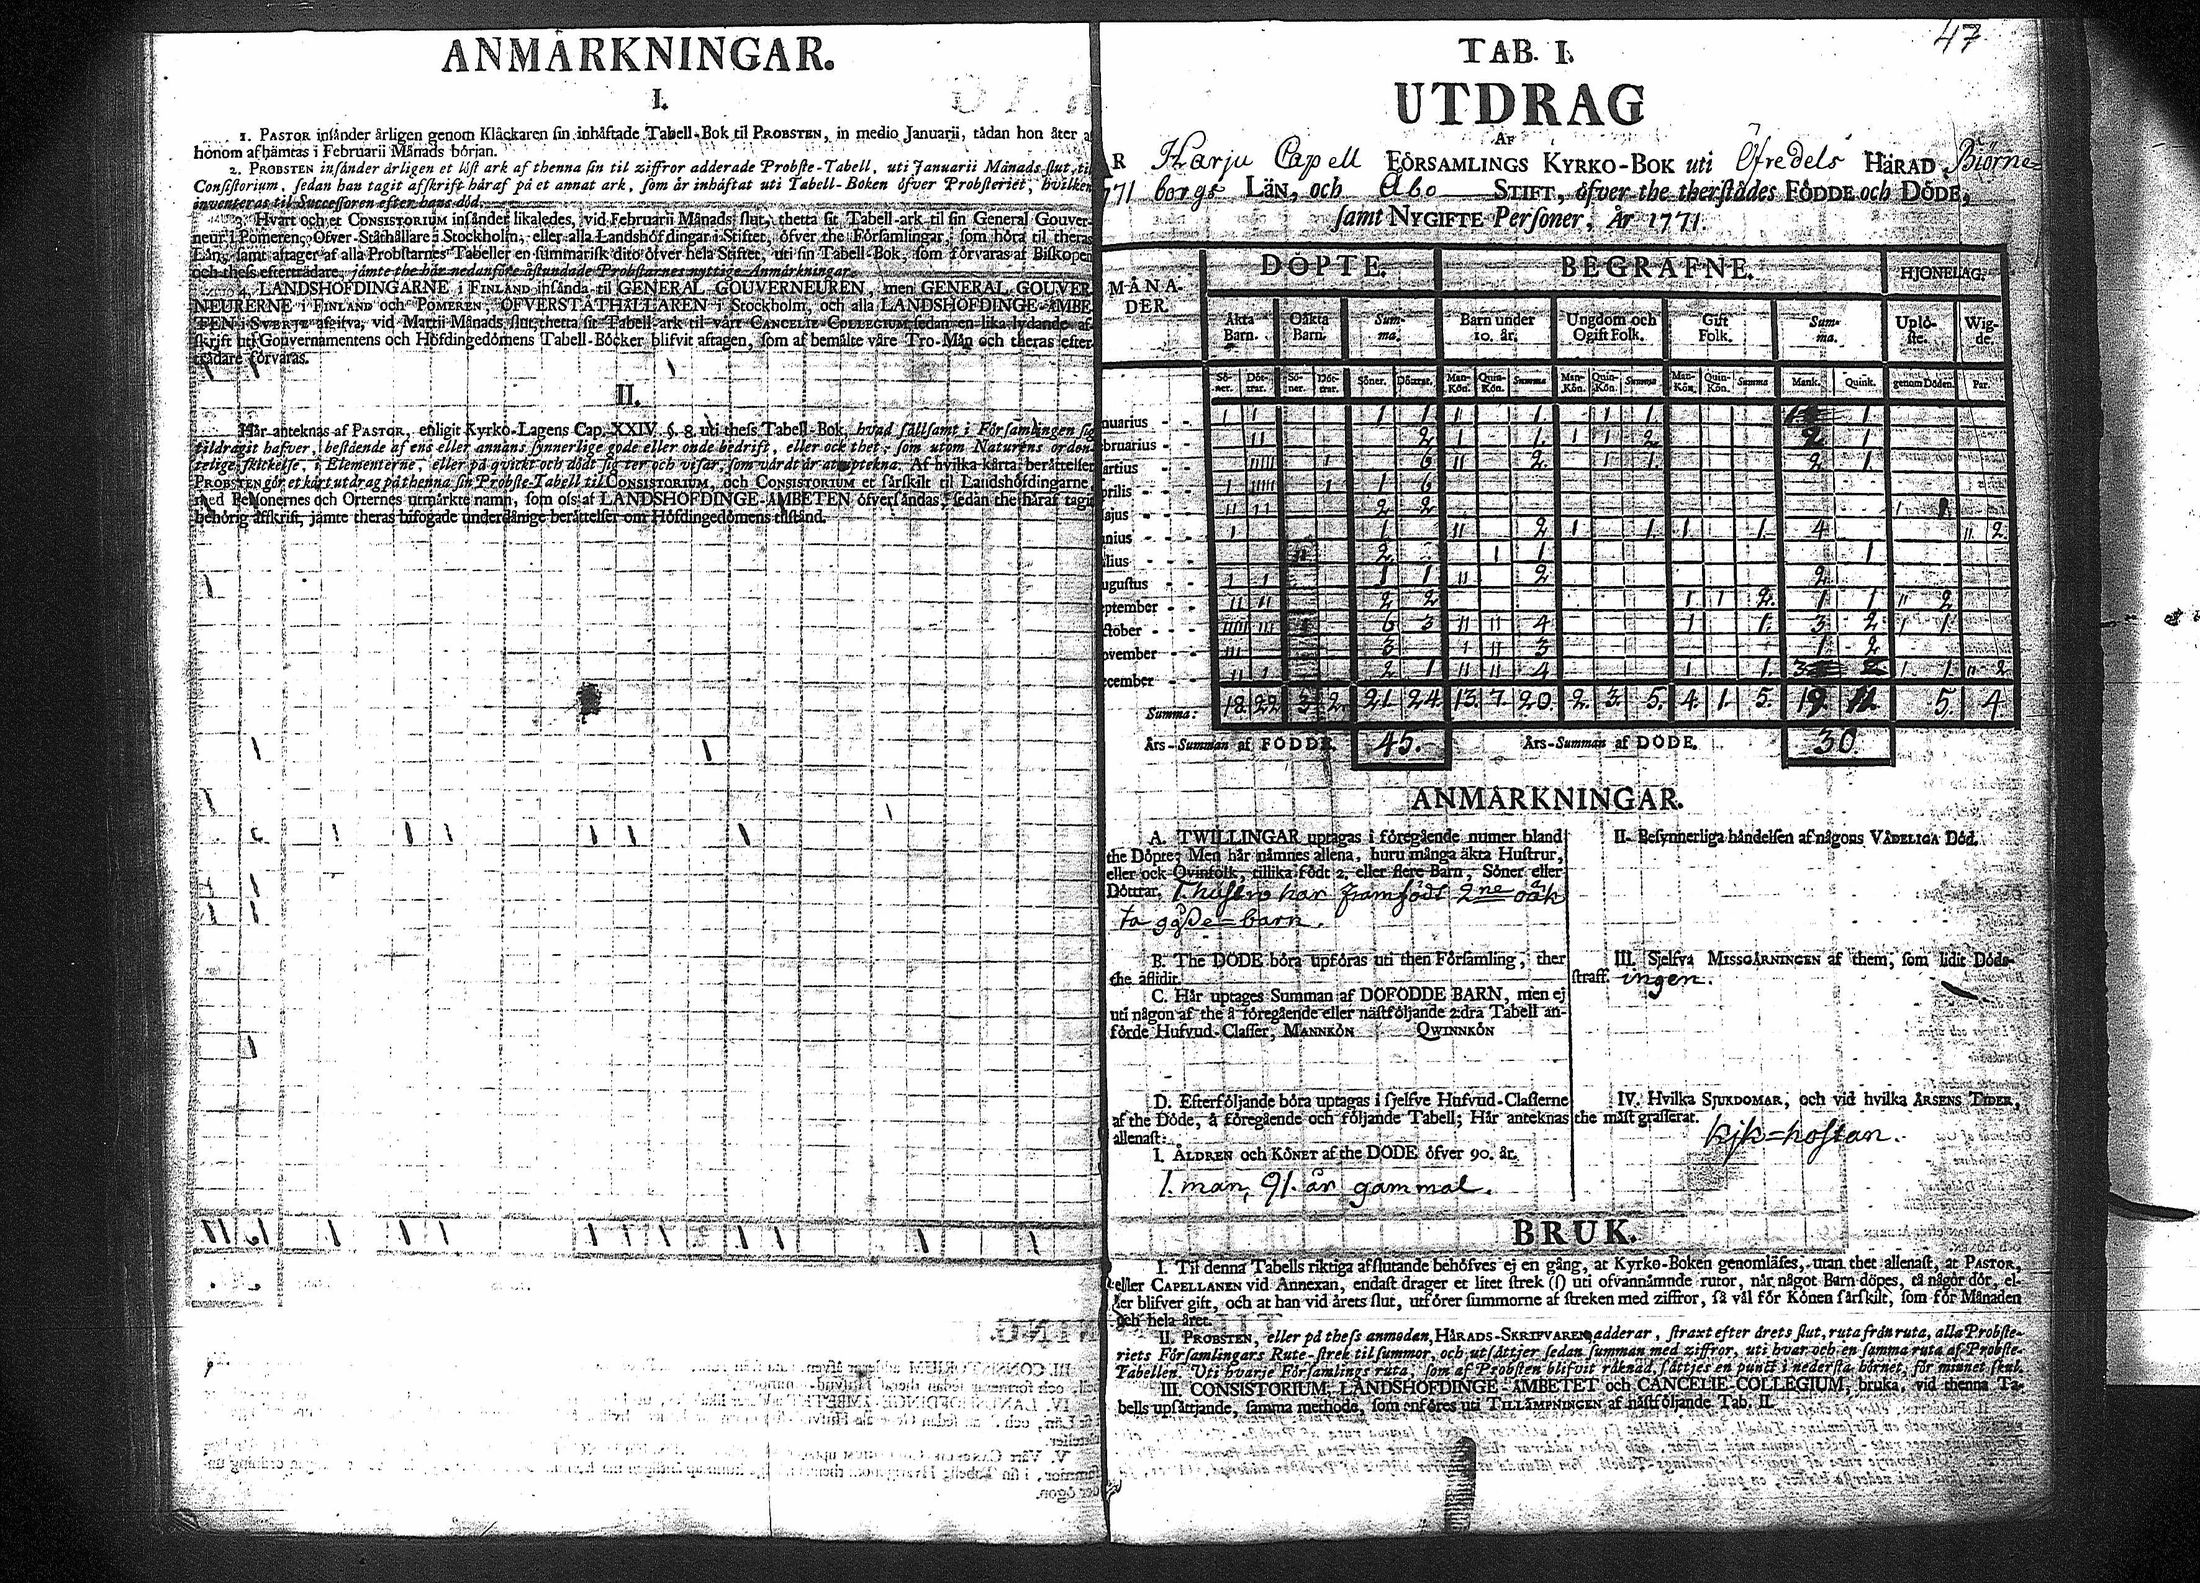 ANMÄRKNINGAR.
I.
1. PASTOR insänder årligen genom Klåckaren sin inhäftade Tabell-Bok til PROBSTEN, in medio Januarii, tådan hon åter af
honom afhämtas i Februarii Månads början.
2. PROBSTEN insänder årligen et löst ark af thenna sin til ziffror adderade Probste-Tabell, uti Januarii Månads slut, til
Consistorium, sedan han tagit afskrift häraf på et annat ark, som är inhäftat uti Tabell-Boken öfver Probsteriet, hvilken
inventeras til Successoren efter hans död.
3. Hvart och et CONSISTORIUM insänder likaledes, vid Februarii Månads slut, thetta sit Tabell-ark til sin General Gouver-
neur i Pomeren, Öfver-Ståthållare i Stockholm, eller alla Landshöfdingar i Stiftet, öfver the Församlingar, som höra til theras
Län, samt aftager af alla Probstarnes Tabeller en summarisk dito öfver hela Stiftet, uti sin Tabell-Bok, som förvaras af Biskopen
och thess efterträdare, jämte the här nedanföre åstundade Probstarnes nyttige Anmärkningar.
4. LANDSHÖFDINGARNE i FINLAND insända til GENERAL GOUVERNEUREN, men GENERAL GOUVER-
NEURERNE i FINLAND och POMEREN, ÖFVERSTÅTHÅLLAREN i Stockholm, och alla LANDSHÖFDINGE-ÄMBE-
TEN i SVERJE afgifva, vid Martii Månads slut, thetta sit Tabell-ark til vårt CANCELIE-COLLEGIUM, sedan en lika lydande af-
skrift uti Gouvernamentens och Höfdingedömens Tabell-Böcker blifvit aftagen, som af bemälte våre Tro-Män och theras efter-
trädare förvaras.
II.
Här anteknas af PASTOR, enligit Kyrko-Lagens Cap. XXIV. §. 8. uti thess Tabell-Bok, hvad sällsamt i Församlingen sig
tildragit hafver, bestående af ens eller annans synnerlige gode eller onde bedrift, eller ock thet, som utom Naturens orden-
telige skickelse, i Elementerne, eller på qvickt och dödt sig ter och visar, som värdt är at uptekna. Af hvilka korta berättelser
PROBSTEN gör et kort utdrag på thenna sin Probste-Tabell til CONSISTORIUM, och CONSISTORIUM et särskilt til Landshöfdingarne,
med Personernes och Orternes utmärkte namn, som oss af LANDSHÖFDINGE-ÄMBETEN öfversändas, sedan the häraf tagit
behörig afskrift, jämte theras bifogade underdånige berättelser om Höfdingedömens tilstånd.
47
TAB. I.
UTDRAG
AF
Harju Capell FÖRSAMLINGS KYRKO-BOK uti Öfredels HÄRAD, Biörne-
borgs LÄN, och Åbo STIFT, öfver the therstädes FÖDDE och DÖDE,
samt NYGIFTE Personer, År 1771.
MÅNA-DER. DÖPTE. BEGRAFNE. HJONELAG.
Äkta Barn. Oäkta Barn. Summa. Barn under 10. år. Ungdom och Ogift Folk. Gift Folk. Summa. Uplöste. Wigde.
Söner. Döttrar. Söner. Döttrar. Söner. Döttrar. Man-Kön. Quin-Kön. Summa Man-Kön. Quin-Kön. Summa Man-Kön. Quin-Kön. Summa Mank. Quink. genom Döden. Par.
nuarius 1 1 1 1 11 1. 1 1. 1
bruarius 11 2 1 1. 1 1 2 2 1
artius 11111 1 6 11 2. 1 1. 2 1.
prilis 1 11111 1 1 6
ajus 11 11 2 2 1 1.
nius 1 1 11 2 1 1. 1 1. 4 11 2.
lius 11 2 1 1 1
ugustus 1 1 1 1 11 2 2
ptember 11 11 2 2 1 1 2. 1 1 11 2
ctober 11111 111 1 6 3 11 11 4 1 1. 3 2 1 1.
ovember 111 3 1 11 3 1 2
ecember 11 1 2 1 11 11 4 1 1. 3 2 1 1. 11 2
Summa: 18. 22. 3. 2. 21. 24. 13. 7. 20. 2. 3. 5. 4. 1. 5. 19. 11. 5. 4.
Års-Summan af FÖDDE. 45. Års-Summan af DÖDE. 30.
ANMÄRKNINGAR.
A. TWILLINGAR uptagas i föregående numer bland
the Döpte; Men här nämnes allena, huru många äkta Hustrur,
eller ock Qvinfolk, tillika födt 2. eller flere Barn, Söner eller
Döttrar. 1. hustru har framfödt 2ne oäk
ta gåsse-barn.
B. The DÖDE böra upföras uti then Församling, ther
the aflidit.
C. Här uptages Summan af DÖFÖDDE BARN, men ej
uti någon af the å föregående eller nästföljande 2:dra Tabell an-
förde Hufvud-Classer, MANNKÖN QWINNKÖN
D. Efterföljande böra uptagas i sjelfve Hufvud-Classerne
af the Döde, å föregående och följande Tabell; Här anteknas
allenast:
I. ÅLDREN och KÖNET af the DÖDE öfver 90. år.
1. man, 91. år gammal.
II. Besynnerliga händelsen af någons VÅDELIGA Död.
III. Sjelfva MISSGÄRNINGEN af them, som lidit Döds-
straff. ingen.
IV. Hvilka SJUKDOMAR, och vid hvilka ÅRSENS TIDER,
the mäst grasserat.
kjk=hostan.
BRUK.
I. Til denna Tabells riktiga afslutande behöfves ej en gång, at Kyrko-Boken genomläses, utan thet allenast, at PASTOR,
eller CAPELLANEN vid Annexan, endast drager et litet strek (|) uti ofvannämnde rutor, när något Barn döpes, tå någor dör, el-
ler blifver gift, och at han vid årets slut, utförer summorne af streken med ziffror, så väl för Könen särskilt, som för Månaden
och hela året.
II. PROBSTEN, eller på thess anmodan, HÄRADS-SKRIFVAREN adderar, straxt efter årets slut, ruta från ruta, alla Probste-
riets Församlingars Rute-strek til summor, och utsättjer sedan summan med ziffror, uti hvar och en samma ruta af Probste-
Tabellen. Uti hvarje Församlings ruta, som af Probsten blifvit räknad, sättjes en punct i nedersta hörnet, för minnet skul.
III. CONSISTORIUM, LANDSHÖFDINGE-ÄMBETET och CANCELIE-COLLEGIUM, bruka, vid thenna Ta-
bells upsättjande, samma methode, som enföres uti TILLÄMPNINGEN af nästföljande Tab. II.